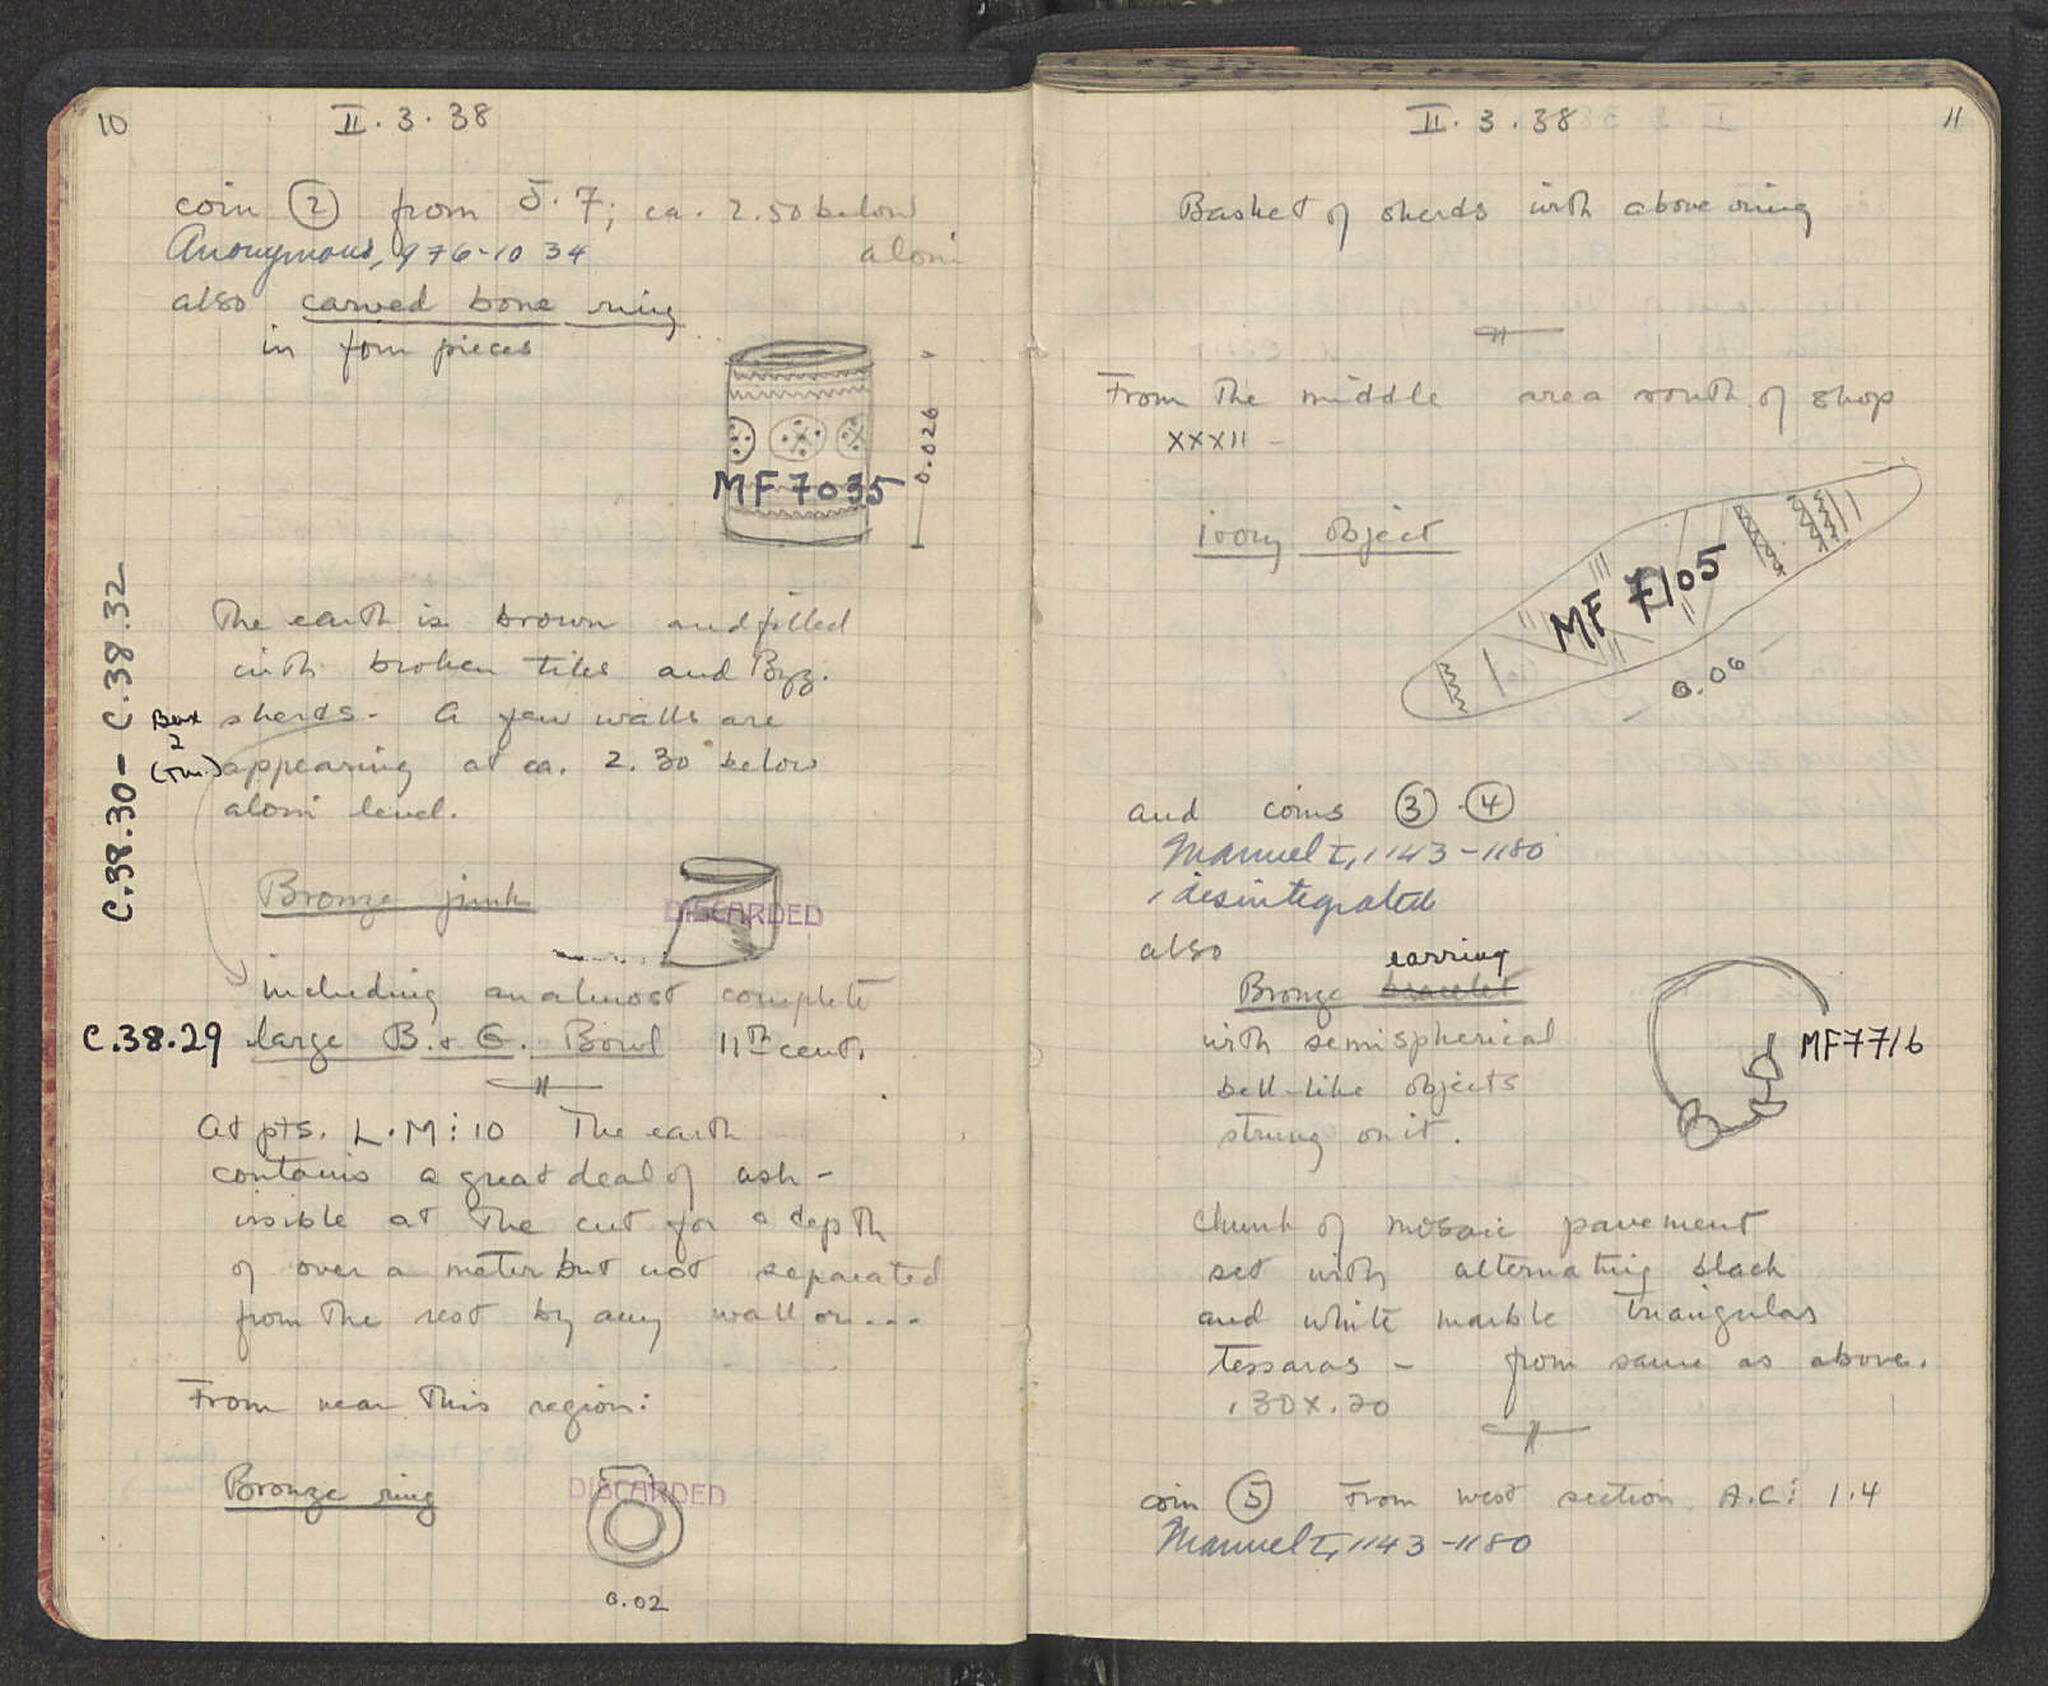 10
II. 3. 38
coin (2) from J. 7; ca. 2.50 below
Anonymous, 976-1034 aloni
also carved bone ring
in four pieces
0.026
MF 7035
The earth is brown and filled
with broken tiles and Byz.
Box sherds - A few walls are
2
appearing at ca. 2.30 below
aloni level.
C.38.30 - C.38.32
Bronze junk
DISCARDED
including an almost complete
C.38.29 large B. & G. Bowl 11th cent.
At pts. L.M:10 The earth
contains a great deal of ash -
visible at the cut for a depth
of over a meter but not separated
from the rest by any wall or ...
From near this region:
Bronze ring
DISCARDED
0.02
II. 3. 38
11
Basket of sherds with above ring
From the middle area south of shop
XXXII -
ivory object
MF 7105
0.06
and coins (3) - (4)
Manuel I, 1143-1180
1 desintegrated
also
earring
Bronze bracelet
with semispherical
bell-like objects
strung on it.
MF7716
chunk of mosaic pavement
set with alternating black
and white marble triangular
tessaras - from same as above.
.30 x .20
coin (5) From west section A.C: 1.4
Manuel I, 1143-1180